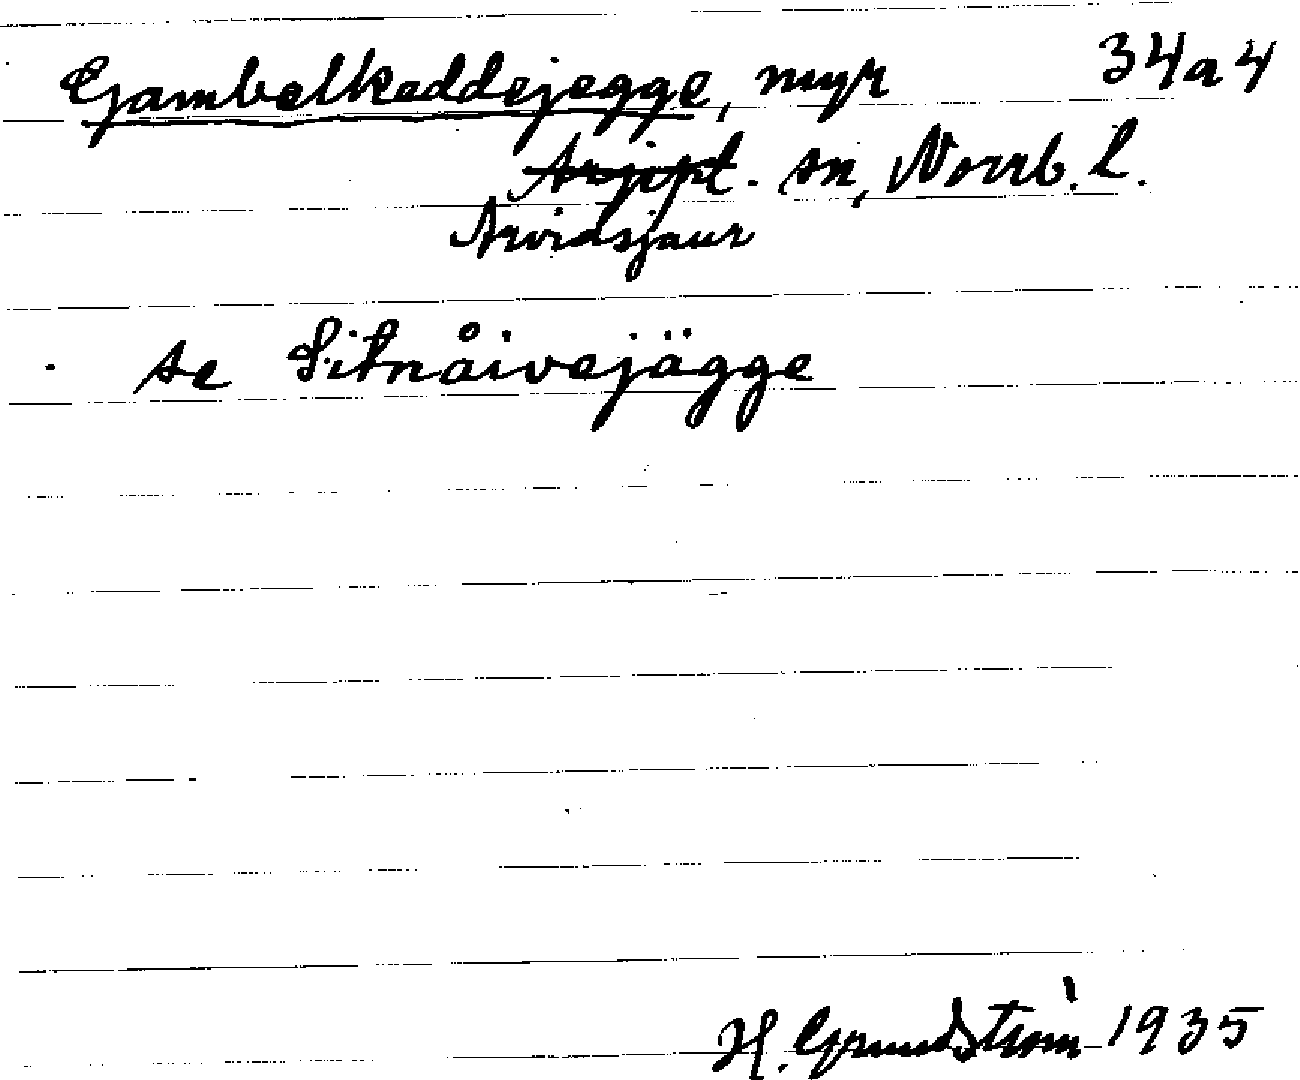 Gambelkeddejegge, myr 34a4
Arjepl. sn, Norrb. l.
Arvidsjaur
se Sitnåivejägge
H. Grundström 1935